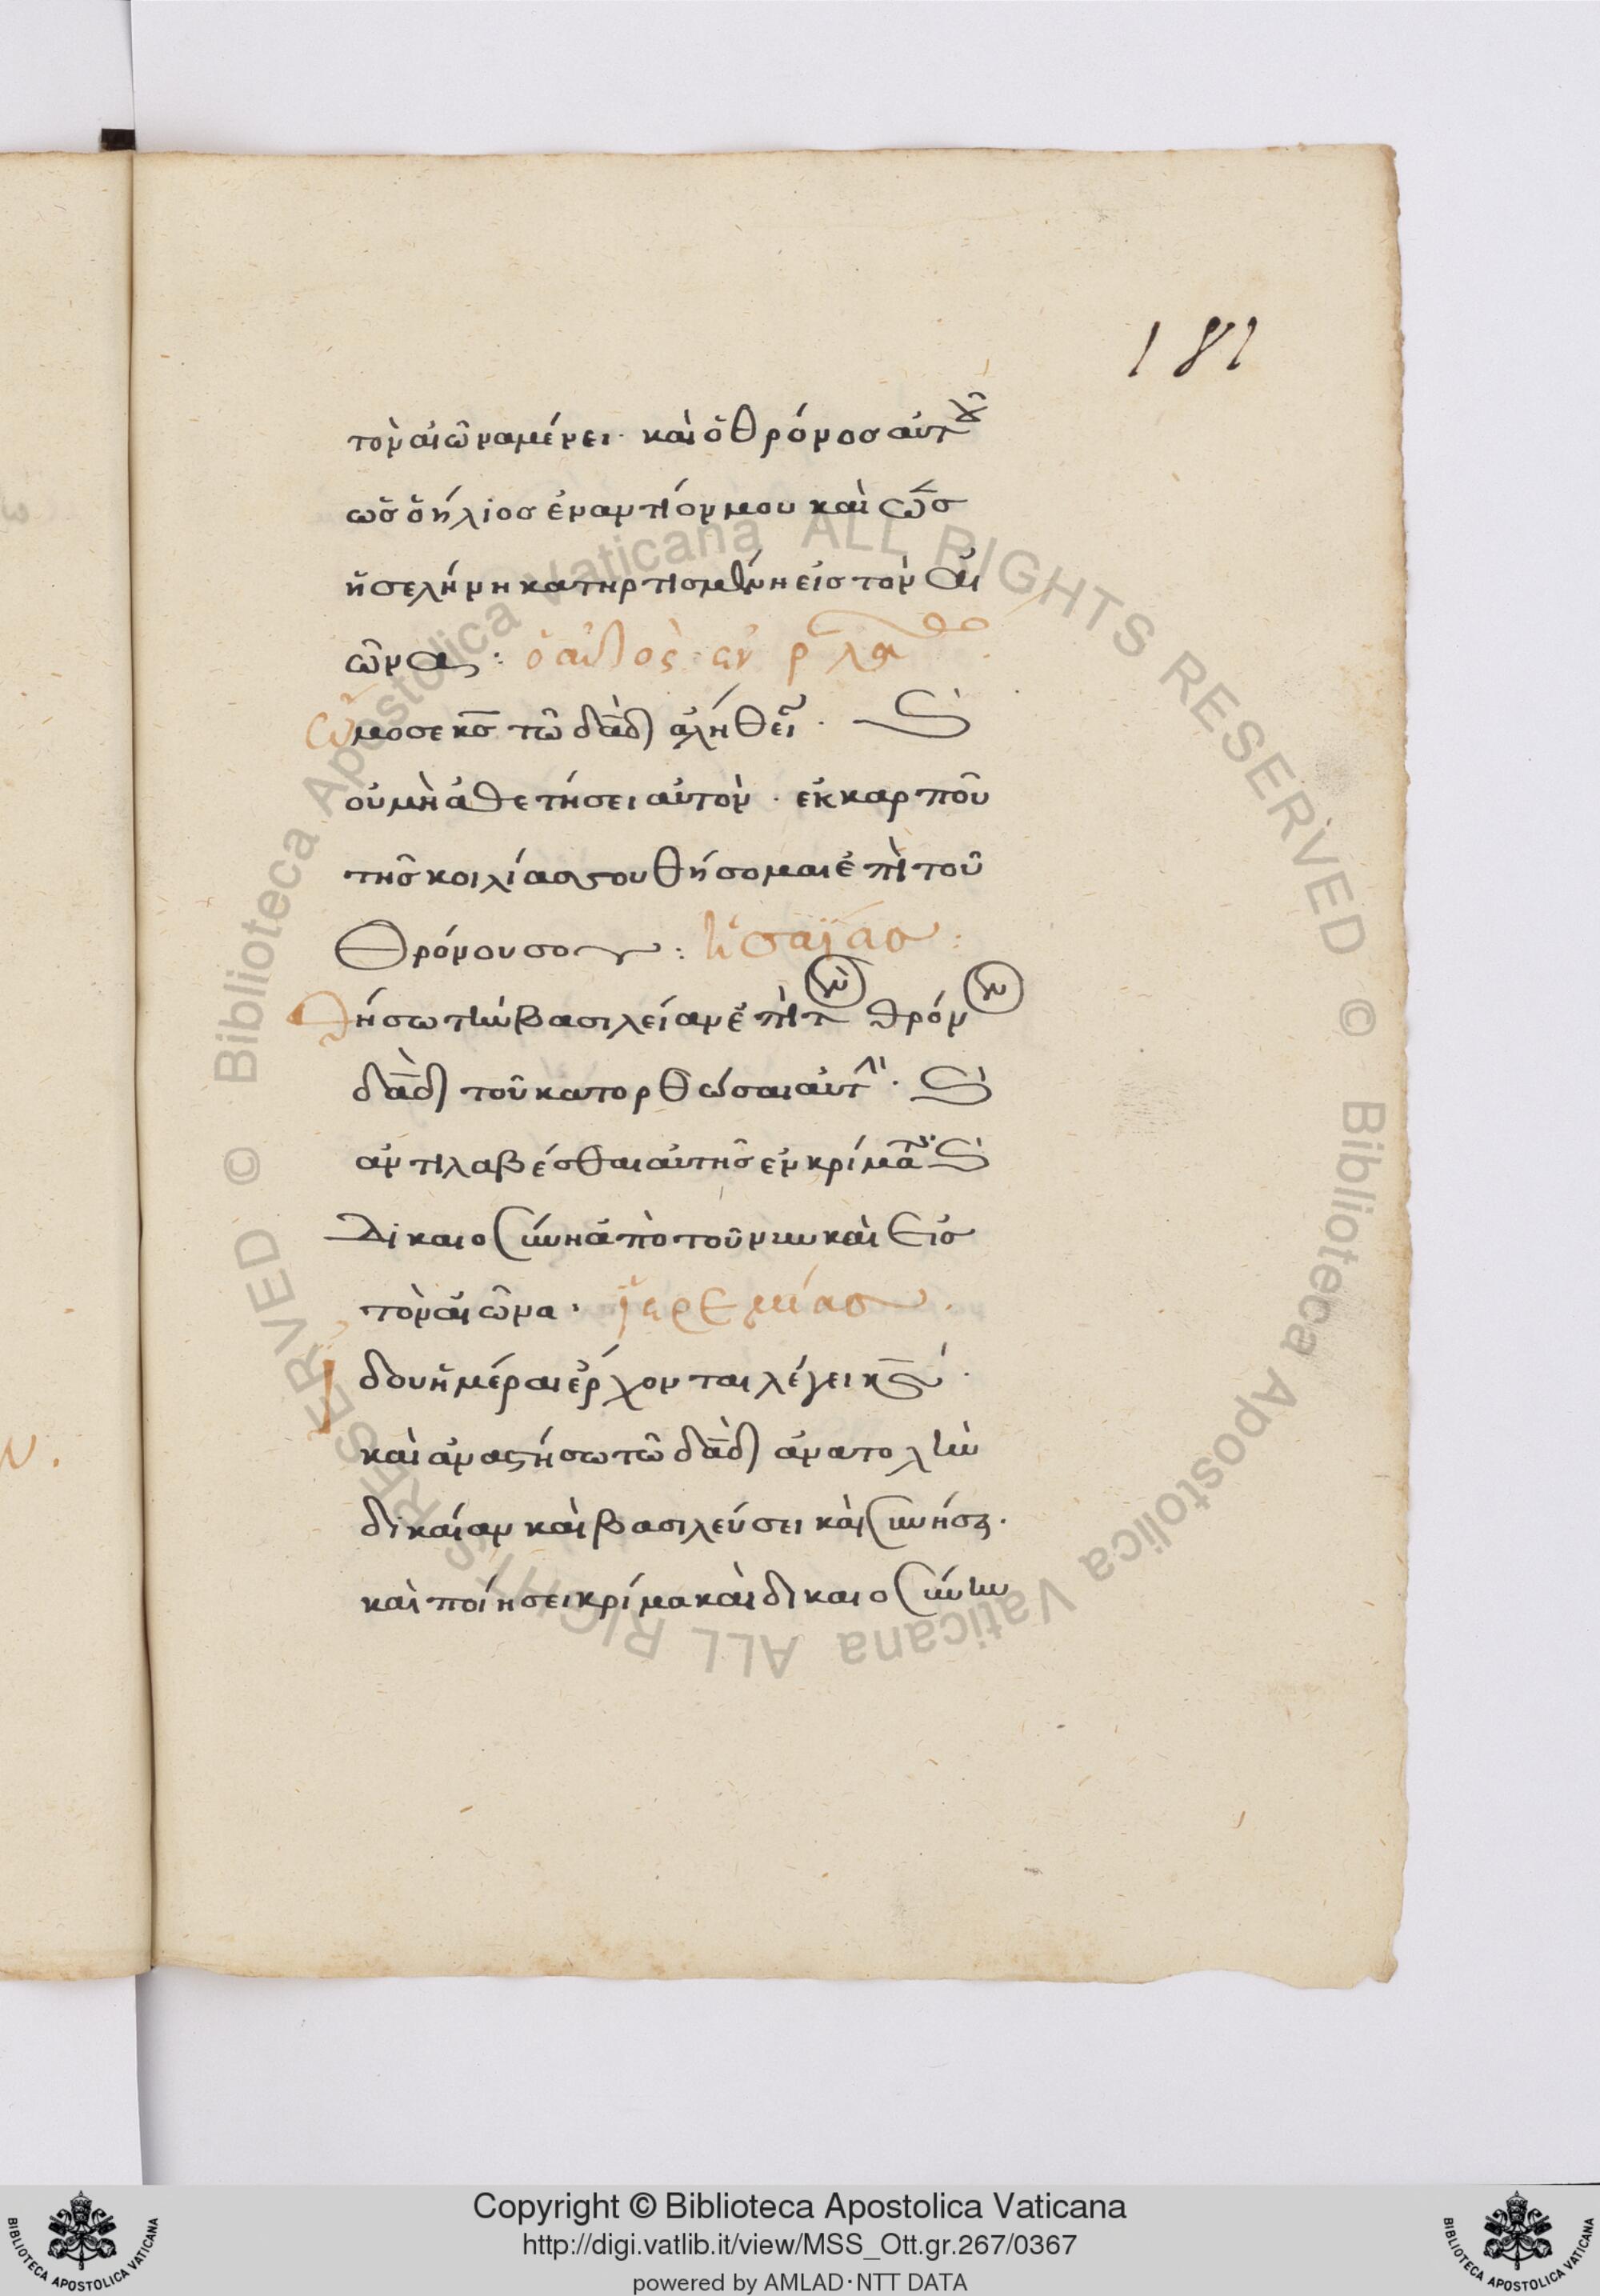 181
τὸν αἰῶνα μένει· καὶ ὁ θρόνος αὐτοῦ
ὡς ὁ ἥλιος ἐναντίον μου καὶ ὡς
ἡ σελήνη κατηρτισμένη εἰς τὸν αἰ
ῶνας: ὁ αὐτὸς ἐν ρλα
ὤμοσε κς τῶ δαδ ἀλήθειαν· καὶ
οὐ μὴ ἀθετήσει αὐτόν· ἐκ καρποῦ
τῆς κοιλίας σου θήσομαι ἐπὶ τοῦ
θρόνου σου: ἡσαΐας:
θήσω τὴν βασιλείαν ἐπὶ τὸν θρόνον
δαδ τοῦ κατορθῶσαι αὐτήν· καὶ
ἀντιλαβέσθαι αὐτῆς ἐν κρίματι καὶ
δικαιοσύνη ἀπὸ τοῦ νῦν καὶ εἰς
τὸν αἰῶνα· ἱερεμίας·
ἰδοὺ ἡμέραι ἔρχονται λέγει κς·
καὶ ἀναστήσω τῶ δαδ ἀνατολὴν
δικαίαν καὶ βασιλεύσει καὶ συνήσει·
καὶ ποιήσει κρίμα καὶ δικαιοσύνην
Copyright © Biblioteca Apostolica Vaticana
http://digi.vatlib.it/view/MSS_Ott.gr.267/0367
powered by AMLAD·NTT DATA
BIBLIOTECA APOSTOLICA VATICANA
BIBLIOTECA APOSTOLICA VATICANA
© Biblioteca Apostolica Vaticana ALL RIGHTS RESERVED
© Biblioteca Apostolica Vaticana ALL RIGHTS RESERVED